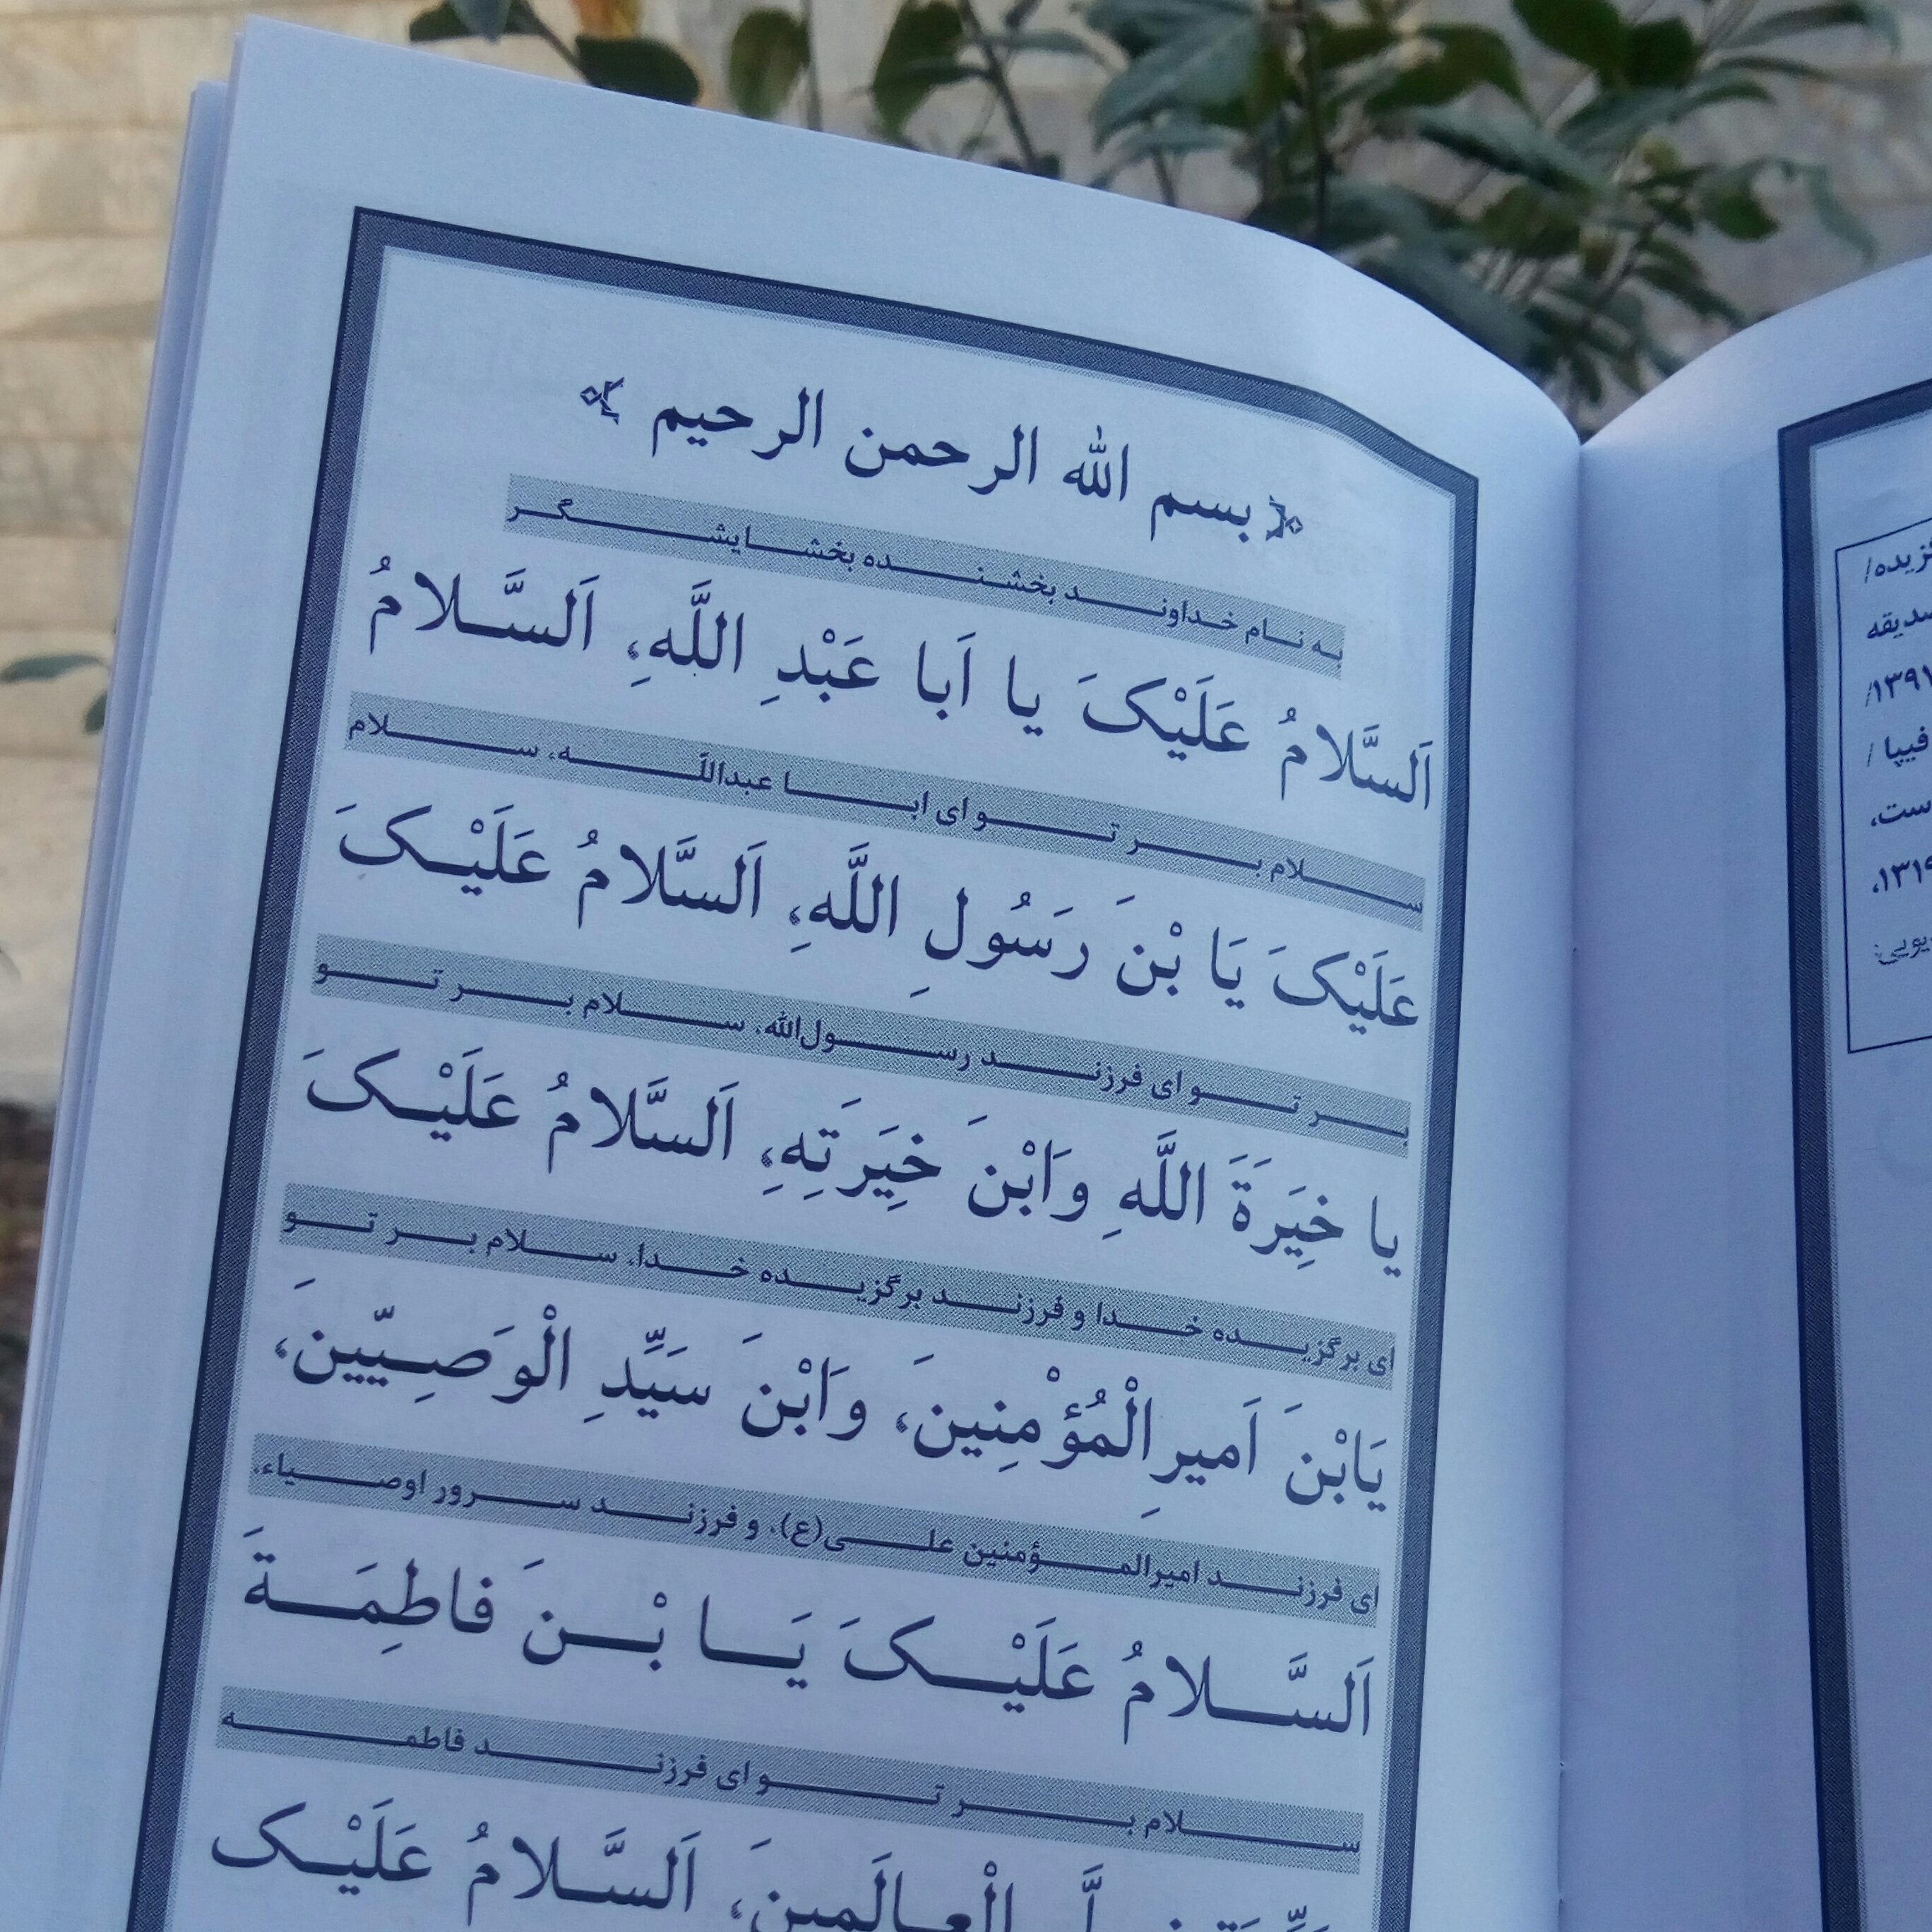 ﴿بسم الله الرحمن الرحیم﴾
به نام خداوند بخشنده بخشایشگر
اَلسَّلامُ عَلَیْکَ یا اَبا عَبْدِ اللَّهِ، اَلسَّلامُ
سلام بر تو ای ابا عبداللَّه، سلام
عَلَیْکَ یَا بْنَ رَسُولِ اللَّهِ، اَلسَّلامُ عَلَیْکَ
بر تو ای فرزند رسول‌الله، سلام بر تو
یا خِیَرَةَ اللَّهِ وَابْنَ خِیَرَتِهِ، اَلسَّلامُ عَلَیْکَ
ای برگزیده خدا و فرزند برگزیده خدا، سلام بر تو
یَابْنَ اَمیرِالْمُؤْمِنینَ، وَابْنَ سَیِّدِ الْوَصِیّینَ،
ای فرزند امیرالمؤمنین علی(ع)، و فرزند سرور اوصیاء،
اَلسَّلامُ عَلَیْکَ یَا بْنَ فاطِمَةَ
سلام بر تو ای فرزند فاطمه
الْعالَمینَ، اَلسَّلامُ عَلَیْک
۱۳۹۷/
فیپا /
است،